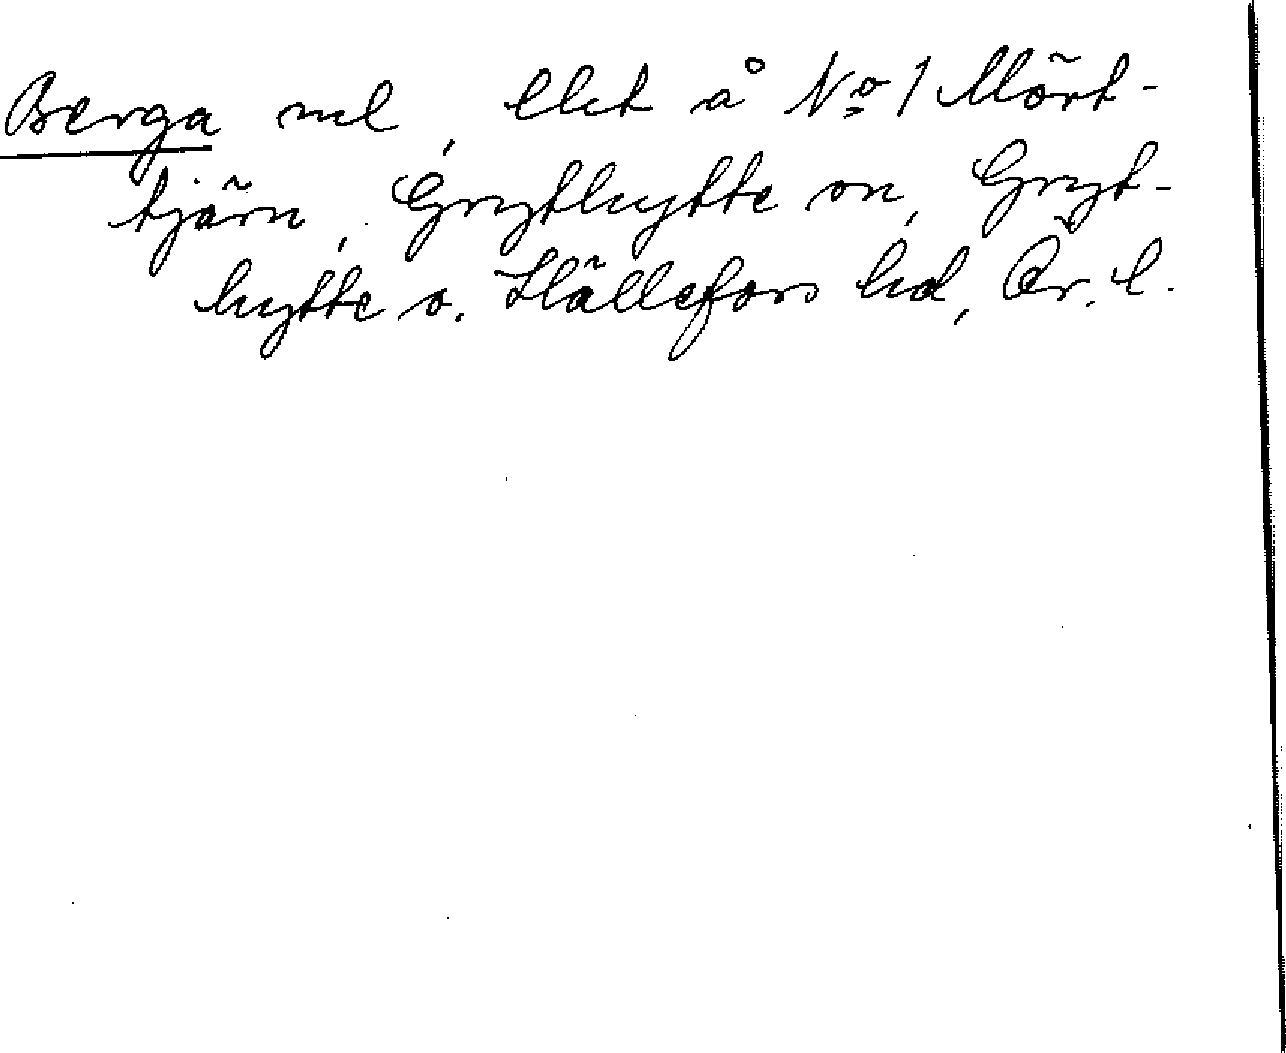 Berga vel, lht å No 1 Mört-
tjärn, Grythytte sn, Gryt-
hytte o. Hällefors hd, Ör. l.